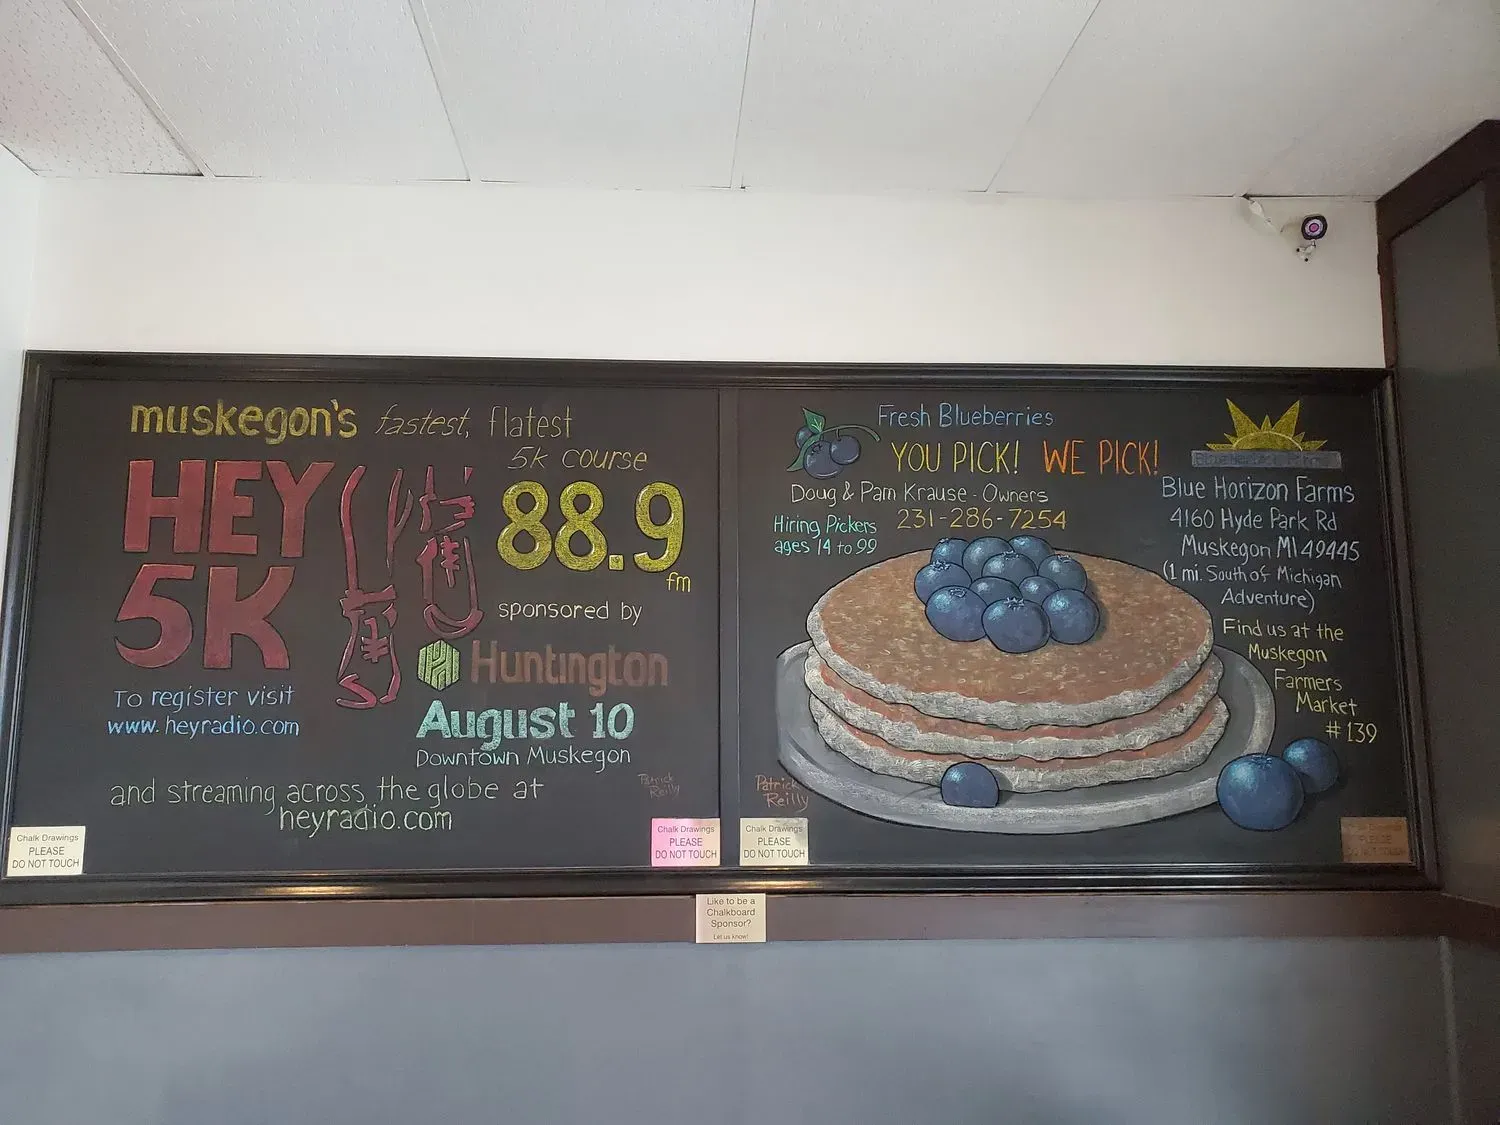 muskegon's fastest, flatest
5k course
HEY
5K
88.9
fm
sponsored by
Huntington
August 10
Downtown Muskegon
To register visit
www.heyradio.com
and streaming across the globe at
heyradio.com
Patrick
Reilly
Chalk Drawings
PLEASE
DO NOT TOUCH
Chalk Drawings
PLEASE
DO NOT TOUCH
Fresh Blueberries
YOU PICK! WE PICK!
Doug & Pam Krause - Owners
231-286-7254
Hiring Pickers
ages 14 to 99
Blue Horizon Farms
4160 Hyde Park Rd
Muskegon MI 49445
(1 mi. South of Michigan
Adventure)
Find us at the
Muskegon
Farmers
Market
#139
Patrick
Reilly
Chalk Drawings
PLEASE
DO NOT TOUCH
Like to be a
Chalkboard
Sponsor?
Let us know!